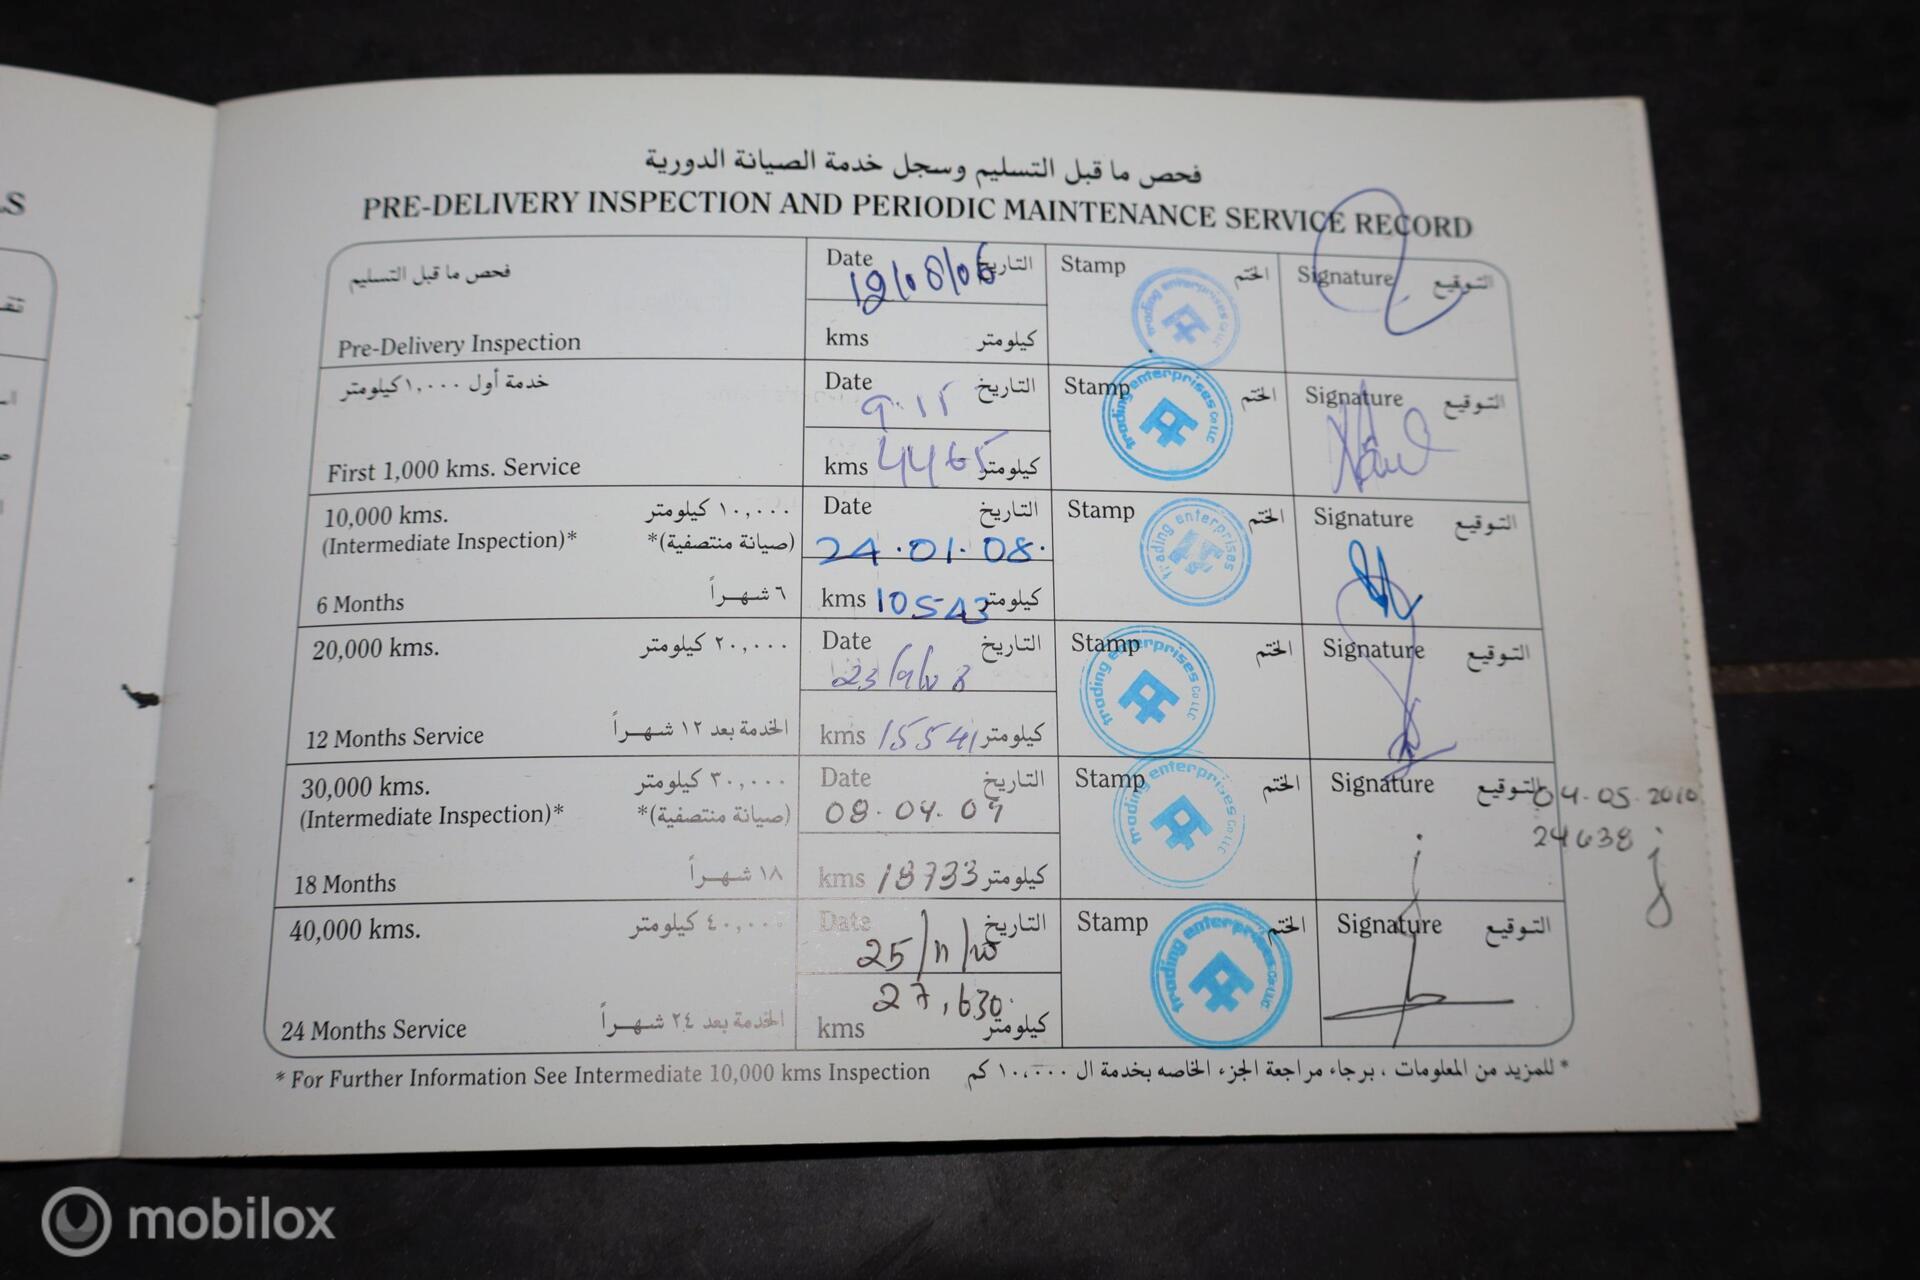 فحص ما قبل التسليم وسجل خدمة الصيانة الدورية
PRE-DELIVERY INSPECTION AND PERIODIC MAINTENANCE SERVICE RECORD
فحص ما قبل التسليم
Pre-Delivery Inspection
Date التاريخ
kms كيلومتر
Stamp الختم
trading enterprises Co LLC
Signature التوقيع
خدمة أول ١,٠٠٠ كيلومتر
First 1,000 kms. Service
Date التاريخ
9.11
kms 4465 كيلومتر
Stamp الختم
trading enterprises Co LLC
Signature التوقيع
10,000 kms. ١٠,٠٠٠ كيلومتر
(Intermediate Inspection)* (صيانة منتصفية)*
6 Months ٦ شهراً
Date التاريخ
24.01.08.
kms 10543 كيلومتر
Stamp الختم
trading enterprises
Signature التوقيع
20,000 kms. ٢٠,٠٠٠ كيلومتر
12 Months Service الخدمة بعد ١٢ شهراً
Date التاريخ
23/9/08
kms 15541 كيلومتر
Stamp الختم
trading enterprises Co LLC
Signature التوقيع
30,000 kms. ٣٠,٠٠٠ كيلومتر
(Intermediate Inspection)* (صيانة منتصفية)*
18 Months ١٨ شهراً
Date التاريخ
08.04.09
kms 18733 كيلومتر
Stamp الختم
trading enterprises Co LLC
Signature التوقيع
04.05.2010
24638
40,000 kms. ٤٠,٠٠٠ كيلومتر
24 Months Service الخدمة بعد ٢٤ شهراً
Date التاريخ
25/11/10
27,630
kms كيلومتر
Stamp الختم
trading enterprises Co LLC
Signature التوقيع
* For Further Information See Intermediate 10,000 kms Inspection
* للمزيد من المعلومات ، برجاء مراجعة الجزء الخاصه بخدمة ال ١٠,٠٠٠ كم
mobilox